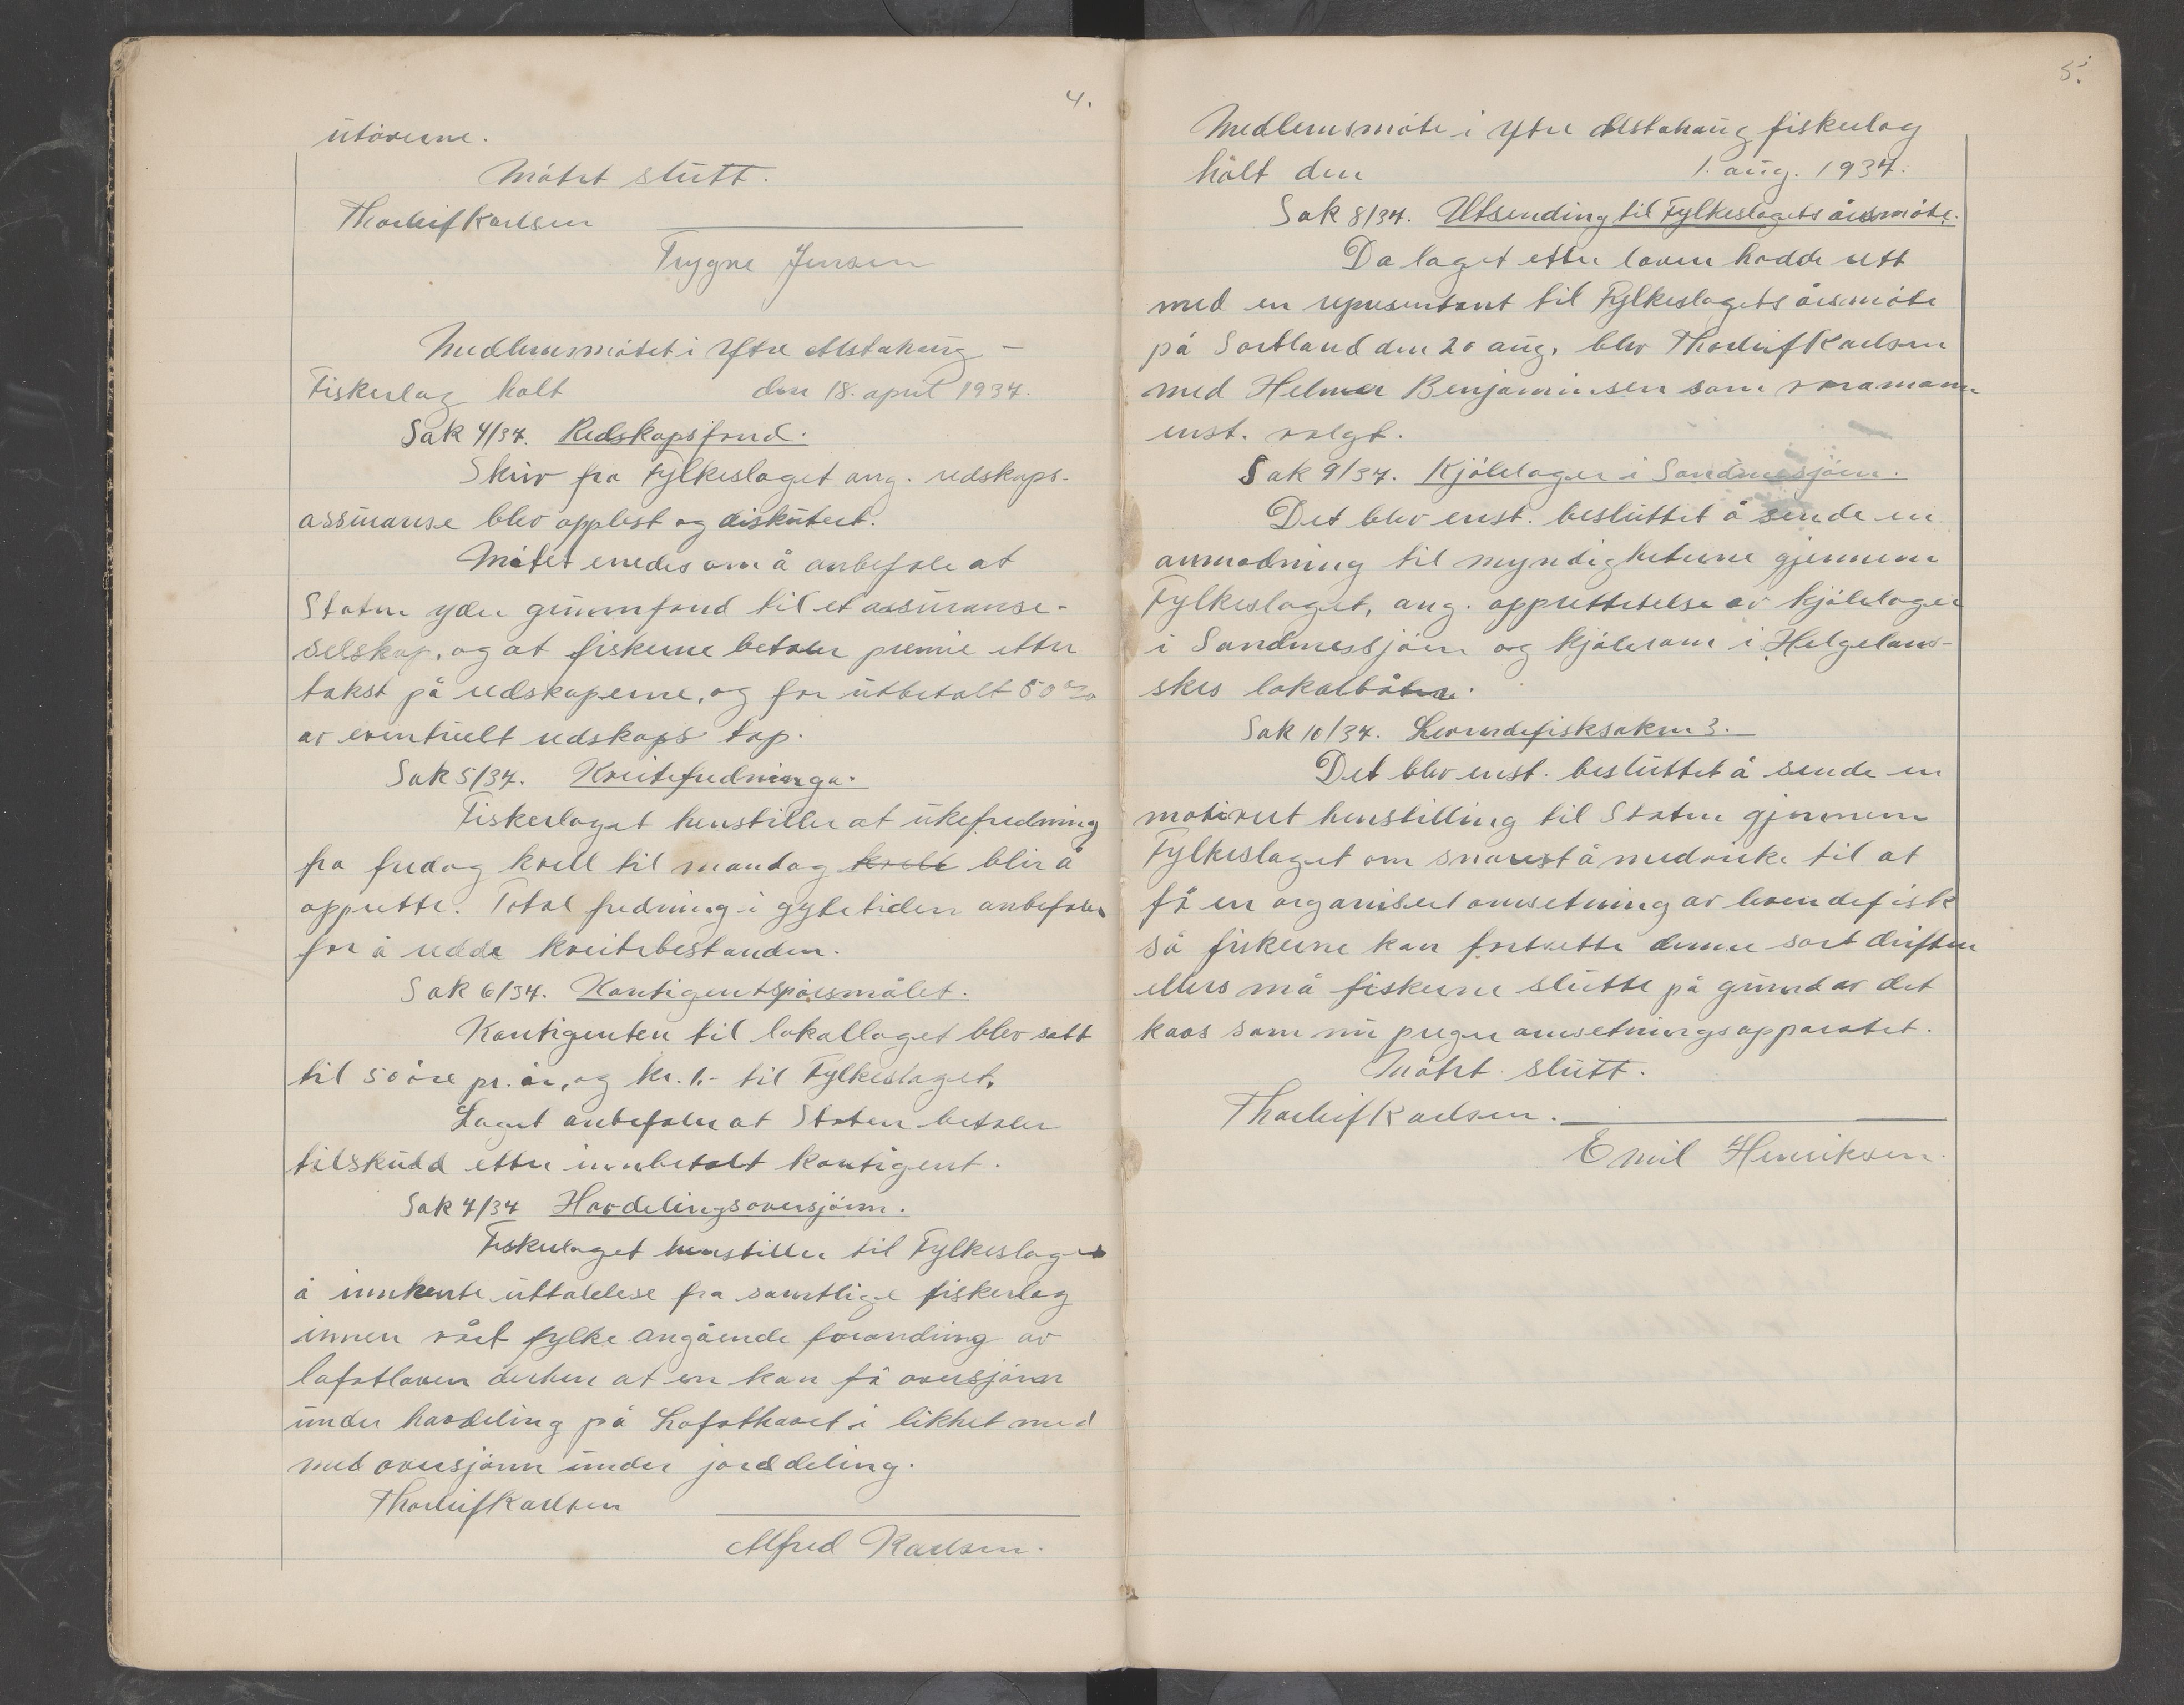 4.
utöverne.
Mötet slutt.
Thorleif Karlsen
Trygve Jensen
Medlemsmötet i Ytre Alstahaug -
Fiskerlag holt den 18. april 1934.
Sak 4/34. Redskapsfond.
Skriv fra Fylkeslaget ang. redskaps-
assuranse blev opplest og diskutert.
Mötet enedes om å anbefale at
Staten yder grunnfond til et assuranse-
selskap, og at fiskerne betaler premie etter
takst på redskaperne, og får utbetalt 80 %
av eventuelt redskaps tap.
Sak 5/34. Kveitefredninga.
Fiskerlaget henstiller at ukefredning
fra fredag kvell til mandag kvell blir å
opprette. Total fredning i gytetiden anbefales
for å redde kveitebestanden.
Sak 6/34. Kontigentspörsmålet.
Kontigenten til lokallaget blev satt
til 50 öre pr. år, og kr. 1.- til Fylkeslaget.
Laget anbefaler at Staten betaler
tilskudd etter innbetalt kontigent.
Sak 7/34 Havdelingsoversjöen.
Fiskerlaget henstiller til Fylkeslaget
å innhente uttalelese fra samtlige fiskerlag
innen vårt fylke angående forandring av
lofotloven derhen at en kan få oversjöen
under havdeling på Lofothavet i likhet med
med oversjöen under jorddeling.
Thorleif Karlsen
Alfred Karlsen.
5.
Medlemsmöte i Ytre Alstahaug fiskerlag
hålt den 1. aug. 1934.
Sak 8/34. Utsending til Fylkeslagets årsmöte.
Da laget etter loven hadde rett
med en representant til Fylkeslagets årsmöte
på Sortland den 20 aug. blev Thorleif Karlsen
med Helmer Benjaminsen som varamann
enst. valgt.
Sak 9/34. Kjölelager i Sandnessjöen.
Det blev enst. besluttet å sende en
anmodning til myndigheterne gjennem
Fylkeslaget, ang. opprettetelse av kjölelager
i Sandnessjöen og kjölerom i Helgelans-
skes lokalbåtene.
Sak 10/34. Levendefisksaken 3.
Det blev enst. besluttet å sende en
motivert henstilling til Staten gjennem
Fylkeslaget om snarest å medvirke til at
få en organisert omsetning av levendefisk
så fiskerne kan fortsette denne sort driften
ellers må fiskerne slutte på grund av det
kaos som nu preger omsetningsapparatet.
Mötet slutt.
Thorleif Karlsen.
Emil Henriksen.